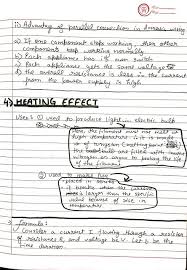 ii) Advantag of parallel connection in domes wiring
a) If one component stops working, then other
components keep working normally.
b) Each appliances has it own switch
c) Each appliances gets the same voltage
d) the overall resistance is less so the current
from the power supply is high.
4) HEATING EFFECT
Use:- ① used to produce light – electric bulb
Here, the filament must not melt at
high temperature : it is made
of tungsten (melting point
the bulbs are filled with
nitrogen or argon to prolong the life
of the filament
② used to make fuse
placed in series
it breaks when the current
is larger than the specific
value because of rise in
temperature
formula:
Consider a current I flowing through a resistor
of resistance R, and voltage be V. Let t be the
time duration